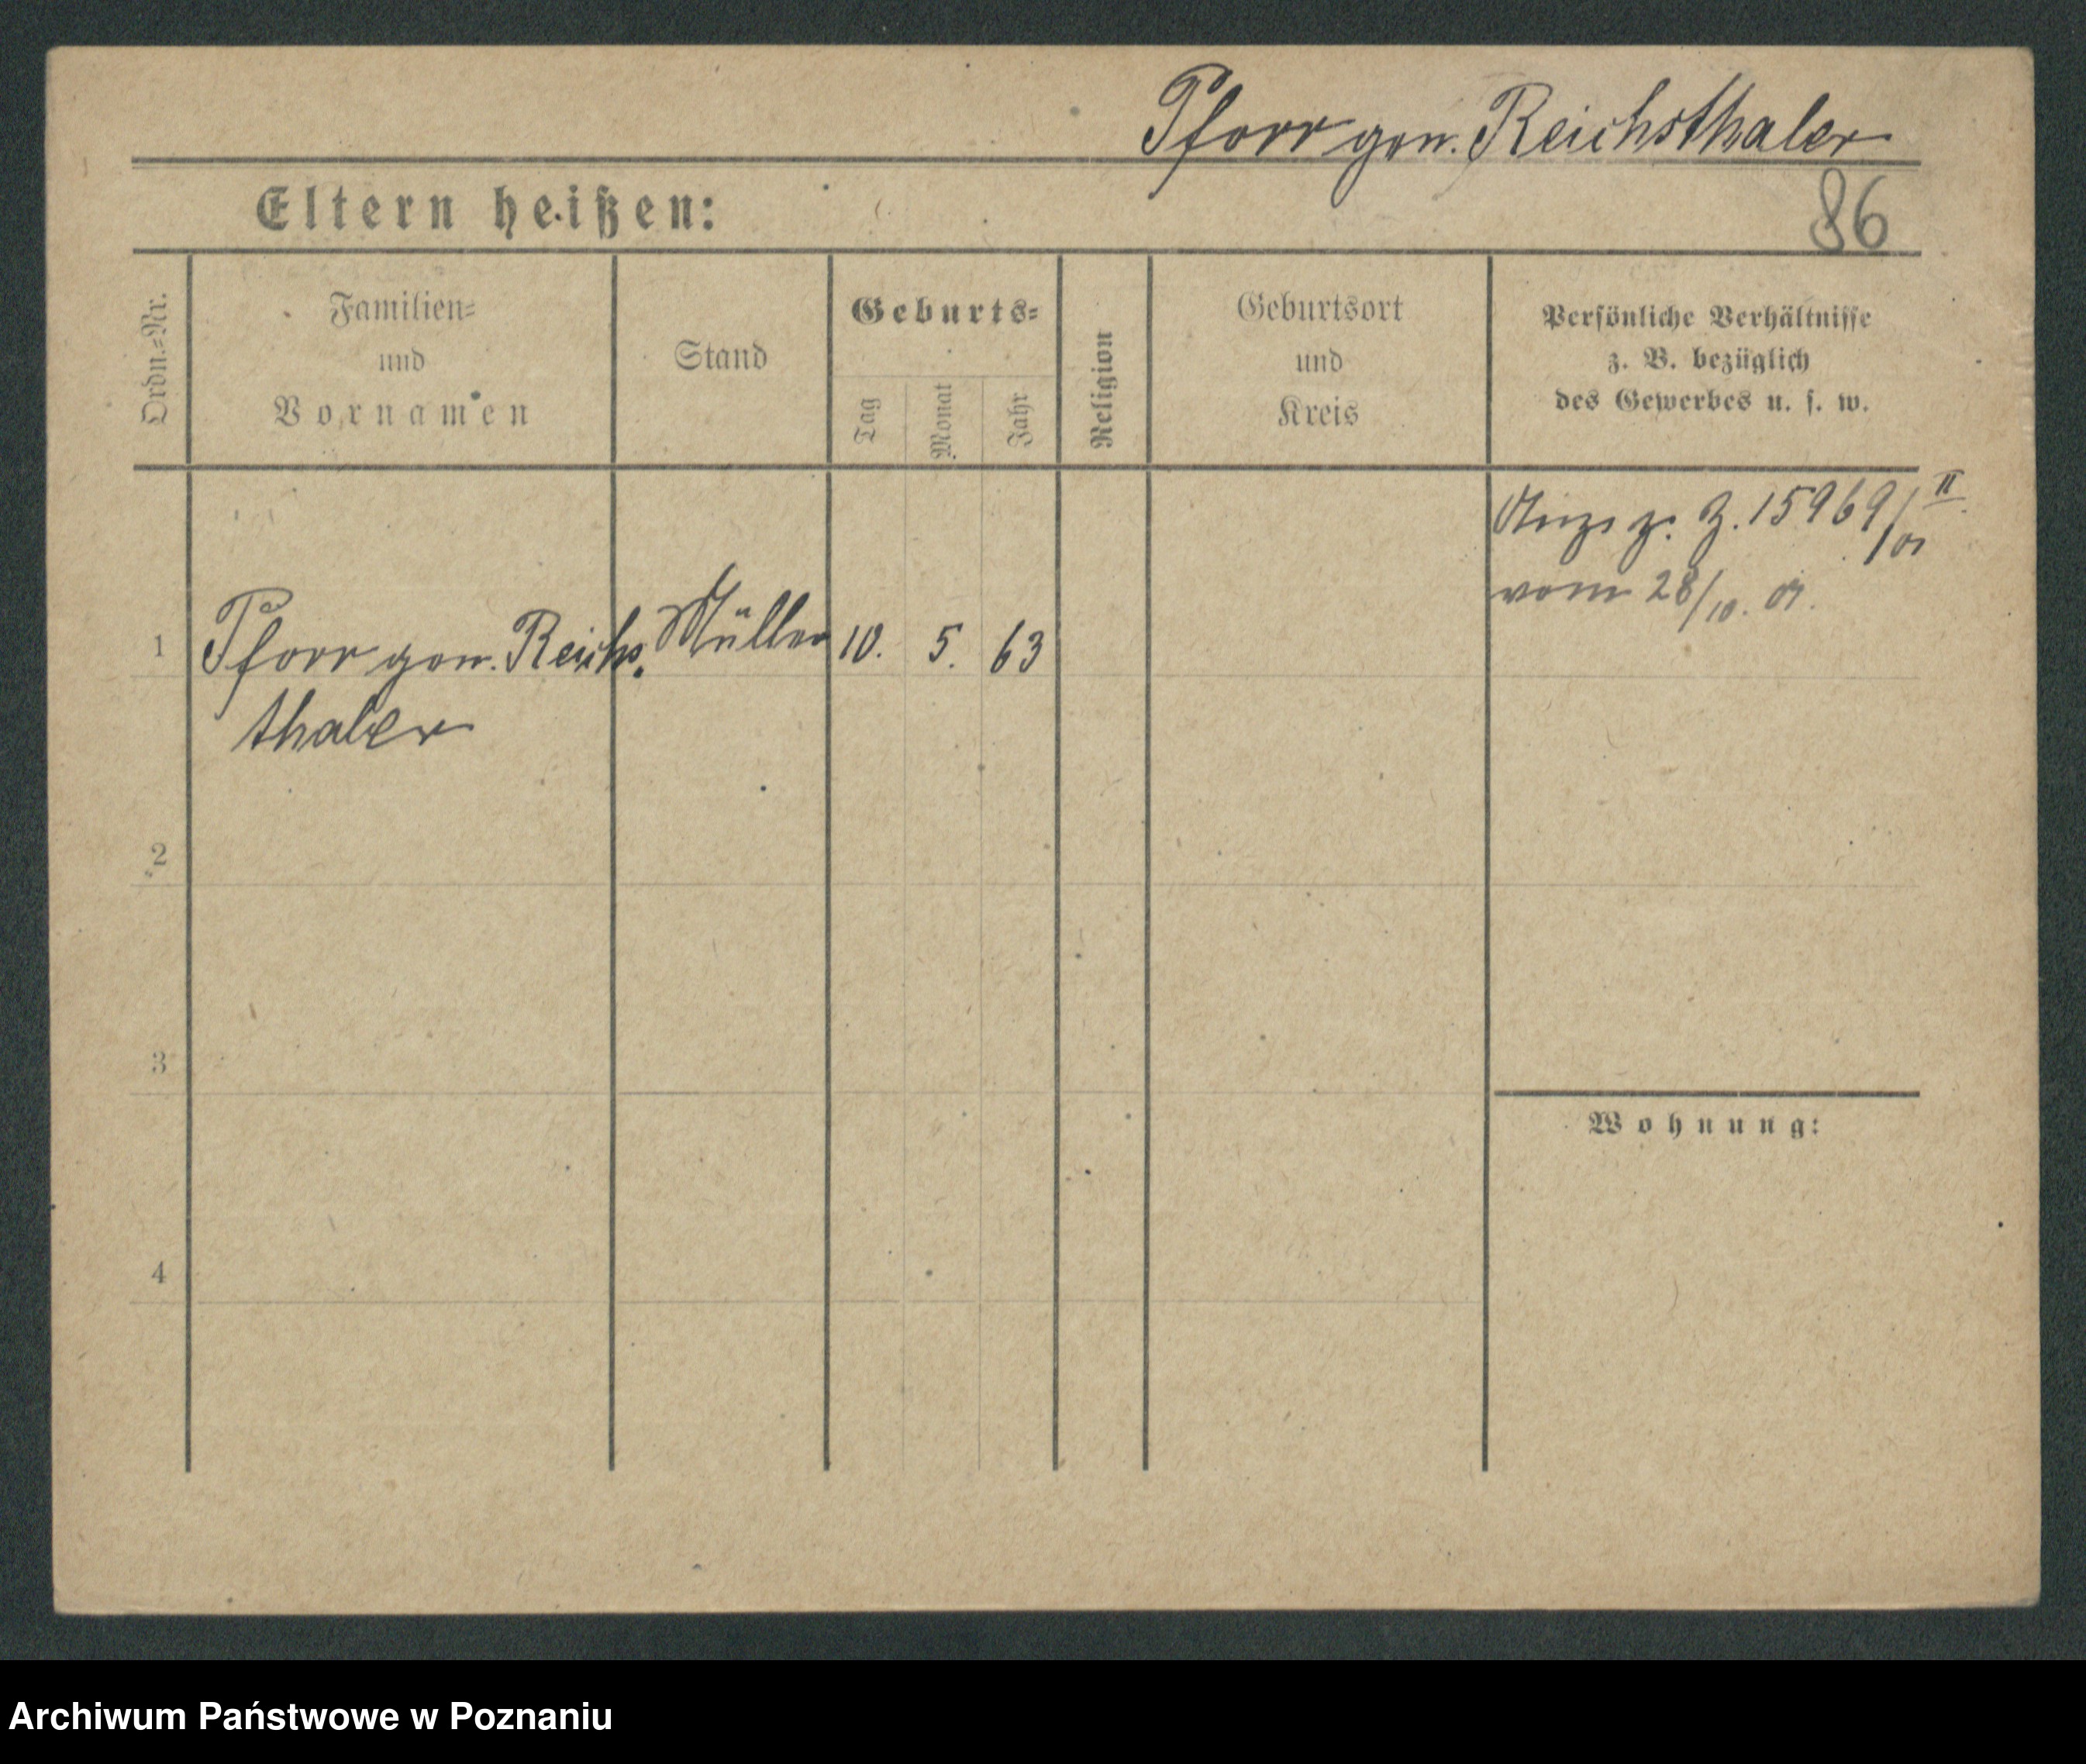 Pforr gen. Reichsthaler
Eltern heißen:
86
Ordn.=Nr.
Familien=
und
Vornamen
Stand
Geburts=
Tag
Monat
Jahr
Religion
Geburtsort
und
Kreis
Persönliche Verhältnisse
z. B. bezüglich
des Gewerbes u. s. w.
z. Z. 15969/II
vom 28/10. 01.
1 Pforr gen. Reichs. Müller 10. 5. 63
thaler
2
3
Wohnung:
4
Archiwum Państwowe w Poznaniu